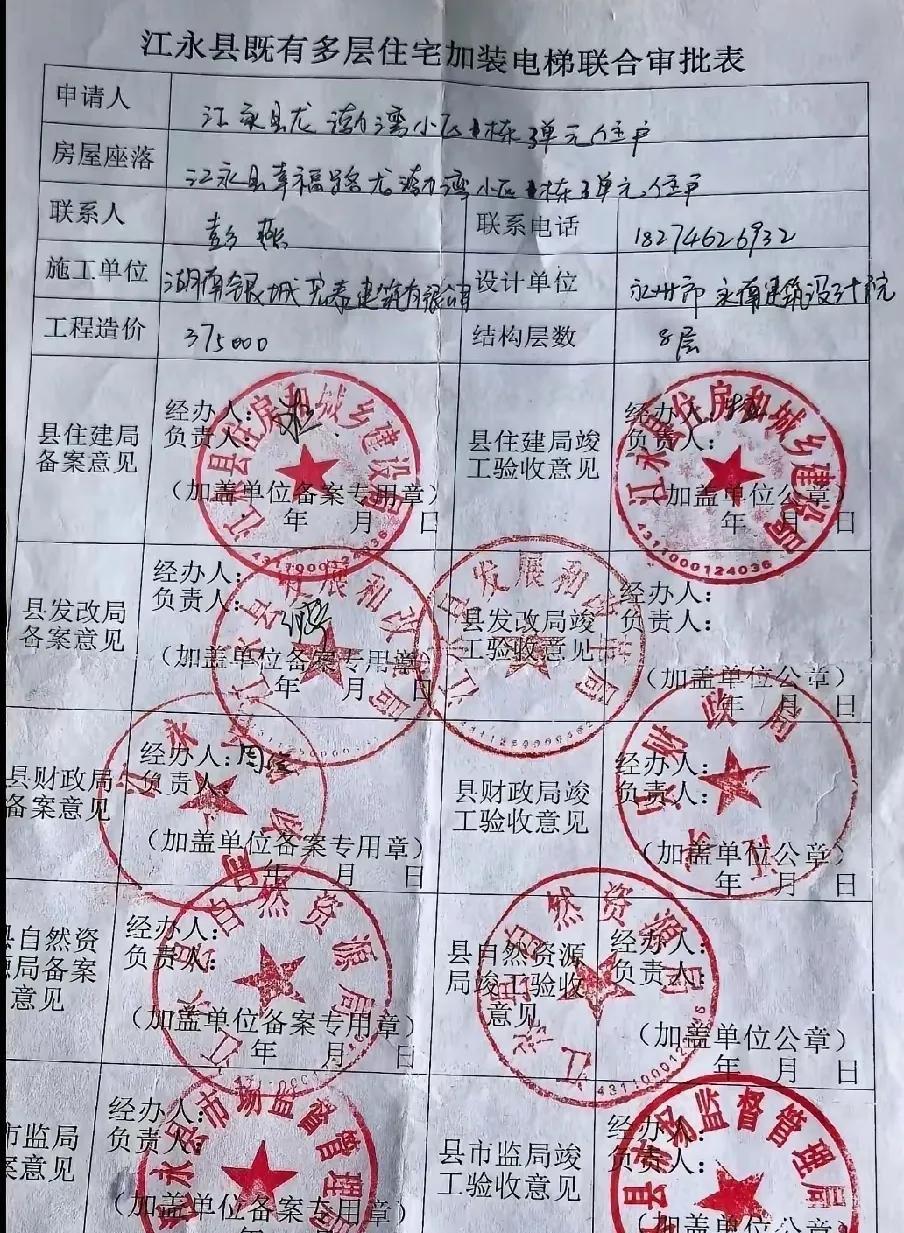 江永县既有多层住宅加装电梯联合审批表
申请人 江永县龙渤湾小区 栋3单元住户
房屋座落 江永县幸福路龙渤湾小区 栋3单元住户
联系人 彭 联系电话 18274626932
施工单位 湖南银城 建筑有限公司 设计单位 永州市永 建筑设计院
工程造价 375000 结构层数 8层
县住建局备案意见
经办人:
负责人:
(加盖单位备案专用章)
年 月 日
江永县住房和城乡建设局
4311000124036
县住建局竣工验收意见
经办人:
负责人:
(加盖单位公章)
年 月 日
江永县住房和城乡建设局
4311000124036
县发改局备案意见
经办人:
负责人:
(加盖单位备案专用章)
年 月 日
江永县发展和改 局
县发改局竣工验收意见
经办人:
负责人:
(加盖单位公章)
年 月 日
江 发展和 局
县财政局备案意见
经办人: 周
负责人:
(加盖单位备案专用章)
年 月 日
县财政局竣工验收意见
经办人:
负责人:
(加盖单位公章)
年 月 日
江永县财政局
县自然资源局备案意见
经办人:
负责人:
(加盖单位备案专用章)
年 月 日
江永县自然资源局
县自然资源局竣工验收意见
经办人:
负责人:
(加盖单位公章)
年 月 日
江永县自然资源局
市监局
案意见
经办人:
负责人:
(加盖单位备案专用章)
年 月 日
永县市场监督管理局
县市监局竣工验收意见
经办人:
负责人:
(加盖单位公章)
县市场监督管理局